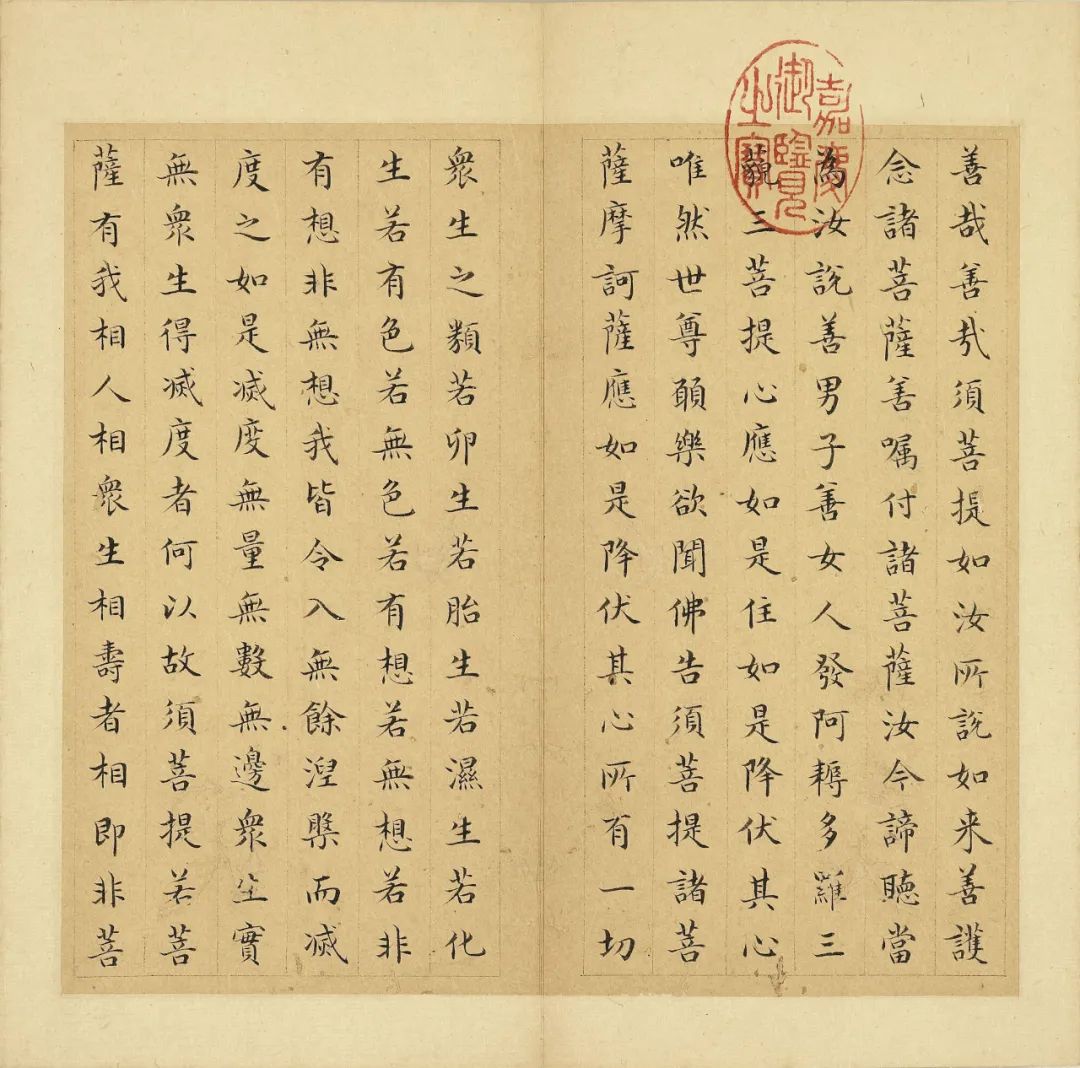 善哉善哉須菩提如汝所說如来善護
念諸菩薩善嘱付諸菩薩汝今諦聽當
為汝說善男子善女人發阿耨多羅三
藐三菩提心應如是住如是降伏其心
唯然世尊願樂欲聞佛告須菩提諸菩
薩摩訶薩應如是降伏其心所有一切
衆生之類若卵生若胎生若濕生若化
生若有色若無色若有想若無想若非
有想非無想我皆令入無餘涅槃而滅
度之如是滅度無量無數無邊衆生實
無衆生得滅度者何以故須菩提若菩
薩有我相人相衆生相壽者相即非菩
嘉慶
御覽
之寶